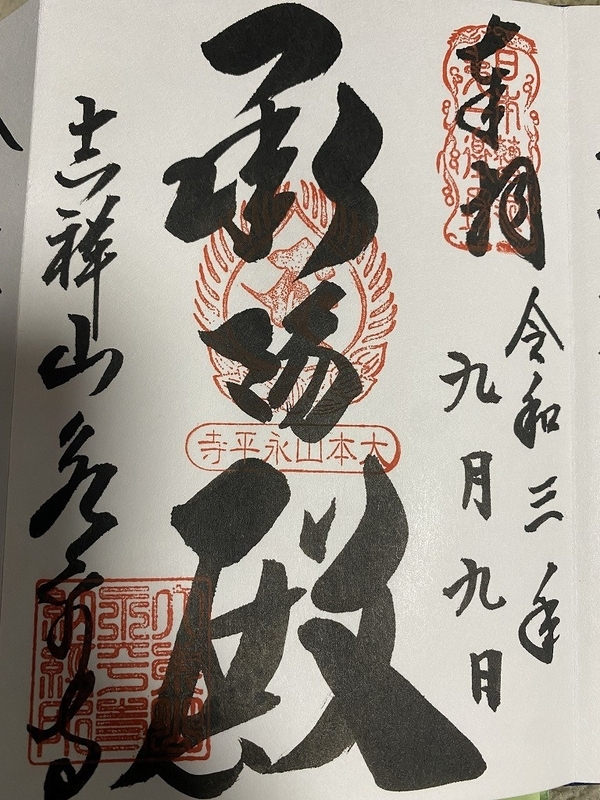 奉拝
令和三年
九月九日
承陽殿
大本山永平寺
吉祥山永平寺